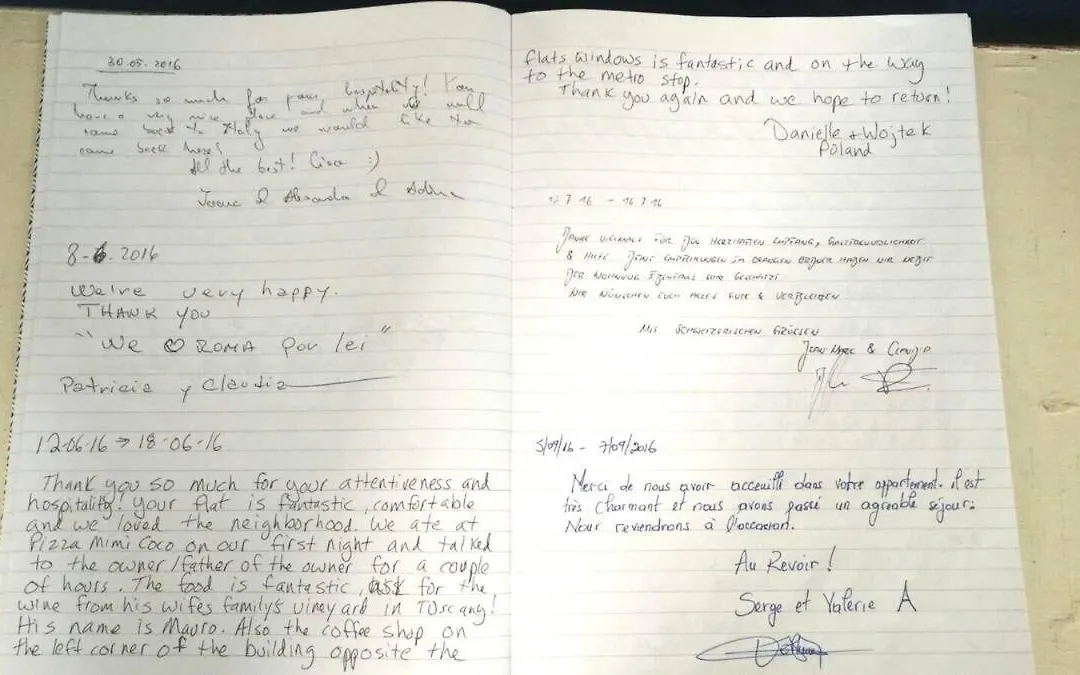 30.05.2016
Thanks so much for your hospitality! You
have a very nice place and when we will
come back to Italy we would like to
come back here!
All the best! Ciao :)
& Alexandra &
8-6. 2016
We're very happy.
THANK YOU
"We ♡ ROMA por lei"
Patricia y Claudia
12-06-16 → 18-06-16
Thank you so much for your attentiveness and
hospitality! Your flat is fantastic, comfortable
and we loved the neighborhood. We ate at
Pizza Mimi Coco on our first night and talked
to the owner/father of the owner for a couple
of hours. The food is fantastic, ask for the
wine from his wifes family's vineyard in Tuscany!
His name is Mauro. Also the coffee shop on
the left corner of the building opposite the
flats windows is fantastic and on the way
to the metro stop.
Thank you again and we hope to return!
Danielle + Wojtek
Poland
12.7.16 - 16.7.16
DANKE VIELMALS FÜR DEN HERZHAFTEN EMPFANG, GASTFREUNDLICHKEIT
& HILFE
DER WOHNUNG
WIR WÜNSCHEN EUCH ALLES GUTE & VERBLEIBEN
MIT SCHWEIZERISCHEN GRÜSSEN
JEAN-MARC & CLAUDIA
5/09/16 - 7/09/2016
Merci de nous avoir acceuilli dans votre appartement. il est
très Charmant et nous avons passé un agreable séjour.
Nous reviendrons à l'occasion.
Au Revoir!
Serge et Valerie A